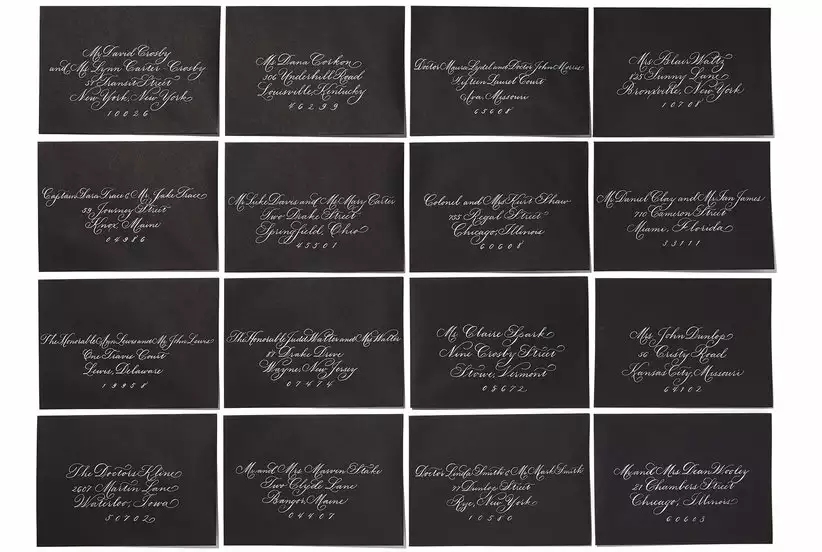 Mr. David Crosby
and Ms. Lynn Carter-Crosby
51 Transit Street
New York, New York
10026
Ms. Dana Corkon
306 Underhill Road
Louisville, Kentucky
40299
Doctor Maura Lydel and Doctor John Morris
Fifteen Laurel Court
Ava, Missouri
65608
Mrs. Blair Waltz
125 Sunny Lane
Bronxville, New York
10708
Captain Sara Trace & Mr. Jake Trace
59, Journey Street
Knox, Maine
04986
Mr. Luke Davis and Ms. Mary Carter
Two Drake Street
Springfield, Ohio
45501
Colonel and Mrs. Kurt Shaw
755 Regal Street
Chicago, Illinois
60608
Mr. Daniel Clay and Mr. Ian James
710 Cameron Street
Miami, Florida
33111
The Honorable Ann Lewis and Mr. John Lewis
One Travis Court
Lewis, Delaware
19958
The Honorable Judd Walter and Mrs. Walter
87 Drake Drive
Wayne, New Jersey
07474
Ms. Claire Spark
Nine Crosby Street
Stowe, Vermont
05672
Mrs. John Dunlop
56 Cristy Road
Kansas City, Missouri
64102
The Doctors Kline
2607 Martin Lane
Waterloo, Iowa
50702
Mr. and Mrs. Marvin Stake
Two Clyde Lane
Bangor, Maine
04407
Doctor Linda Smith & Mr. Mark Smith
77 Dunlop Street
Rye, New York
10580
Mr. and Mrs. Dean Wooley
21 Chambers Street
Chicago, Illinois
60603